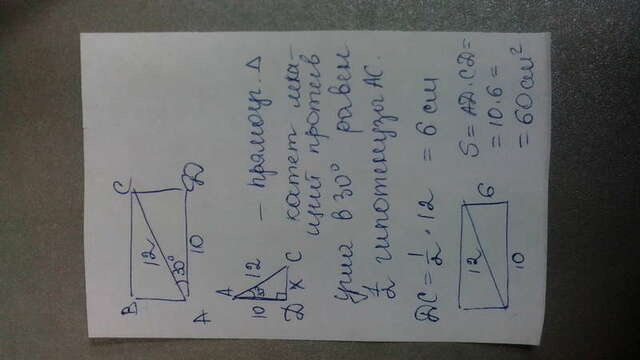 B C
12
30°
A 10 D
A
10 12
D x C
– прямоуг. Δ
катет лежа-
щий против
угла в 30° равен
1/2 гипотенузы AC.
DC = 1/2 · 12 = 6 см
12
6
10
S = AD · CD =
= 10 · 6 =
= 60 см²